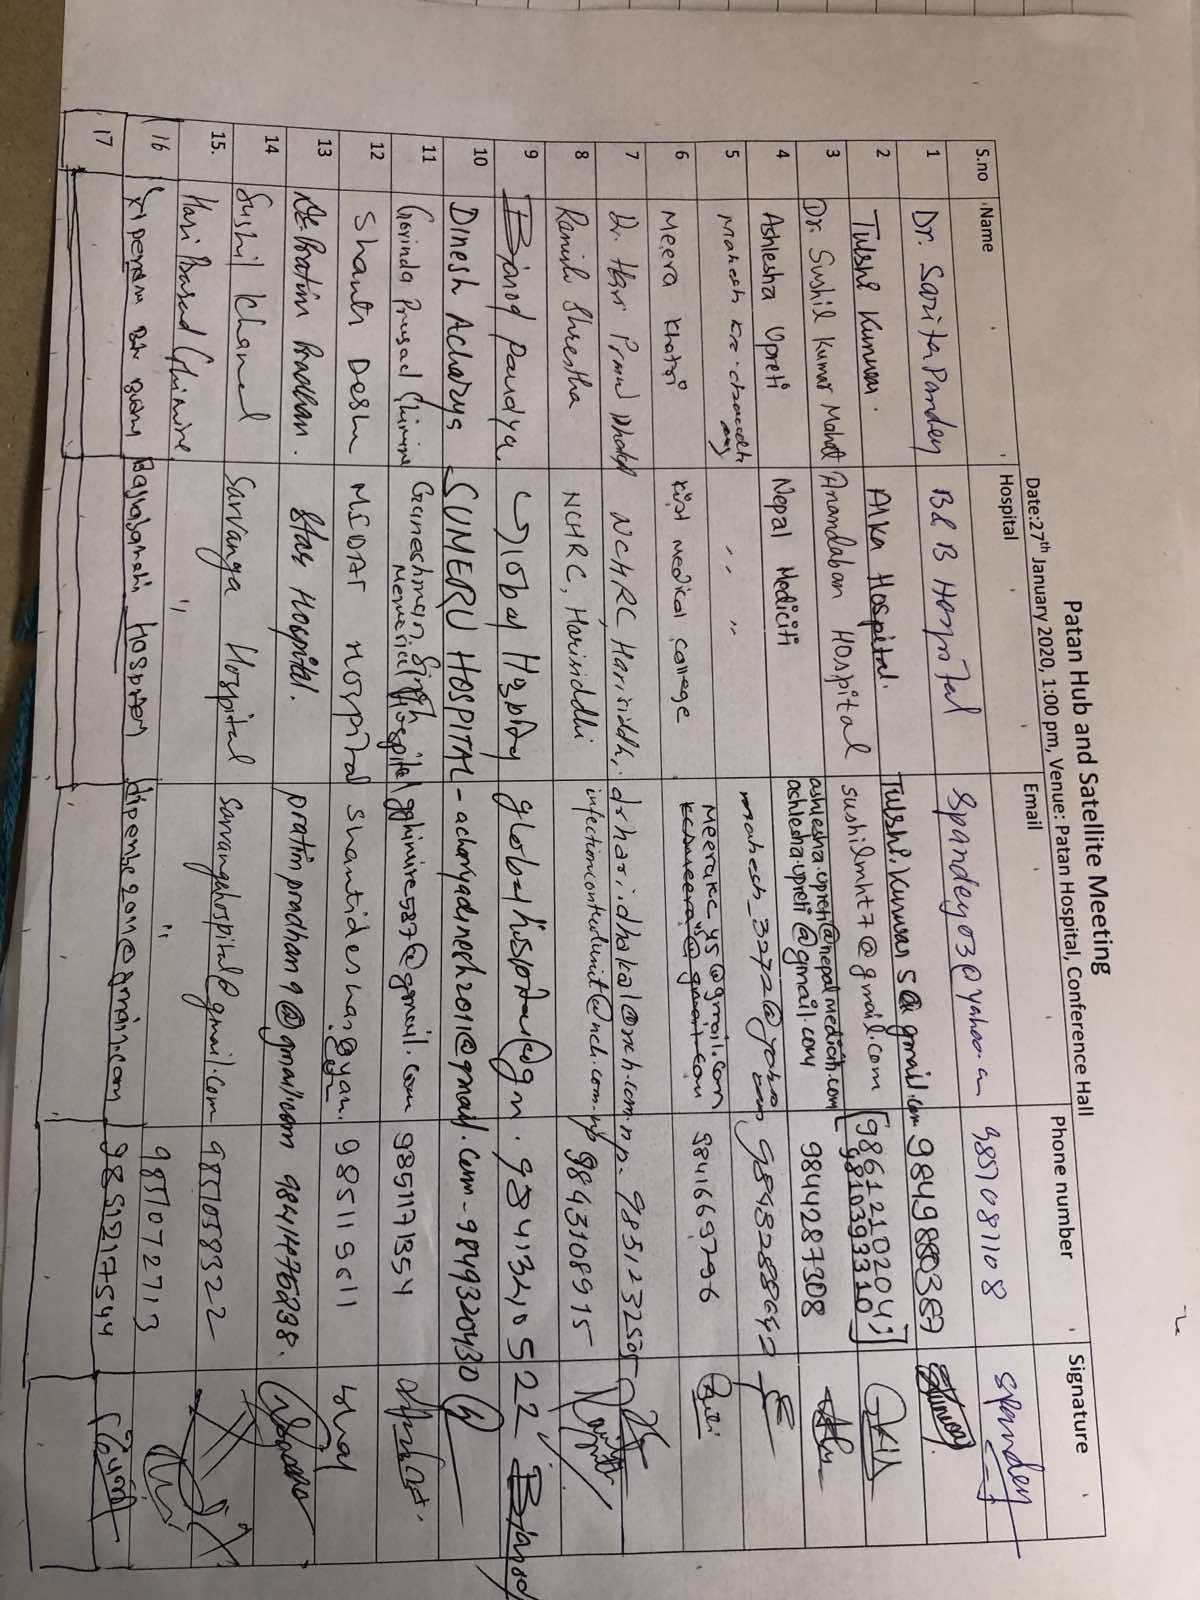 Patan Hub and Satellite Meeting
Date:27th January 2020, 1:00 pm, Venue: Patan Hospital, Conference Hall
S.no Name Hospital Email Phone number Signature
1 Dr. Sarita Pandey B & B Hospital spandey03@yahoo. 9851081108 spandey
2 Tulshi Kunwar. Alka Hospital. Tulshi.Kunwar5@gmail.com 9849880367
3 Dr. Sushil Kumar Mohat Anandaban Hospital sushilmht7@gmail.com [9861210204;
9810393310]
4 Ashlesha Upreti Nepal Mediciti ashlesha.upreti@nepalmediciti.com
ashlesha.upreti@gmail.com 9844287308
5 Mahesh Kr. " " mahesh_3272@yahoo 9848288642
6 Meera Khatri Kist medical college Meerakc45@gmail.com 9841669796
7 Dr. Hari Prasad Dhakal NCHRC, Harisiddhi, dr.hari.dhakal@nch.com.np. 9851232505
8 Ramila Shrestha NCHRC, Harisiddhi infectioncontrolunit@nch.com.np 9843108915
9 Binod Paudya. Global Hospital 9841324052
10 Dinesh Acharya SUMERU HOSPITAL - acharyadinesh2011@gmail.com - 9849320430
11 Govinda Prasad Ghimire Ganeshman Singh
Memorial Hospital gghimire587@gmail.com 9851171354
12 Shanti Deshar MIDAT Hospital shantideshar@ 9851119611
13 Pratim Pradhan. Star Hospital. pratimpradhan9@gmail.com 9841475238.
14 Sushil Khanal Sarvanga Hospital sarvangahospital@gmail.com 9851058322
15. Hari Prasad Ghimire " " 9851072713
16 Hospital dipenbc2011@gmail.com 9851217544
17